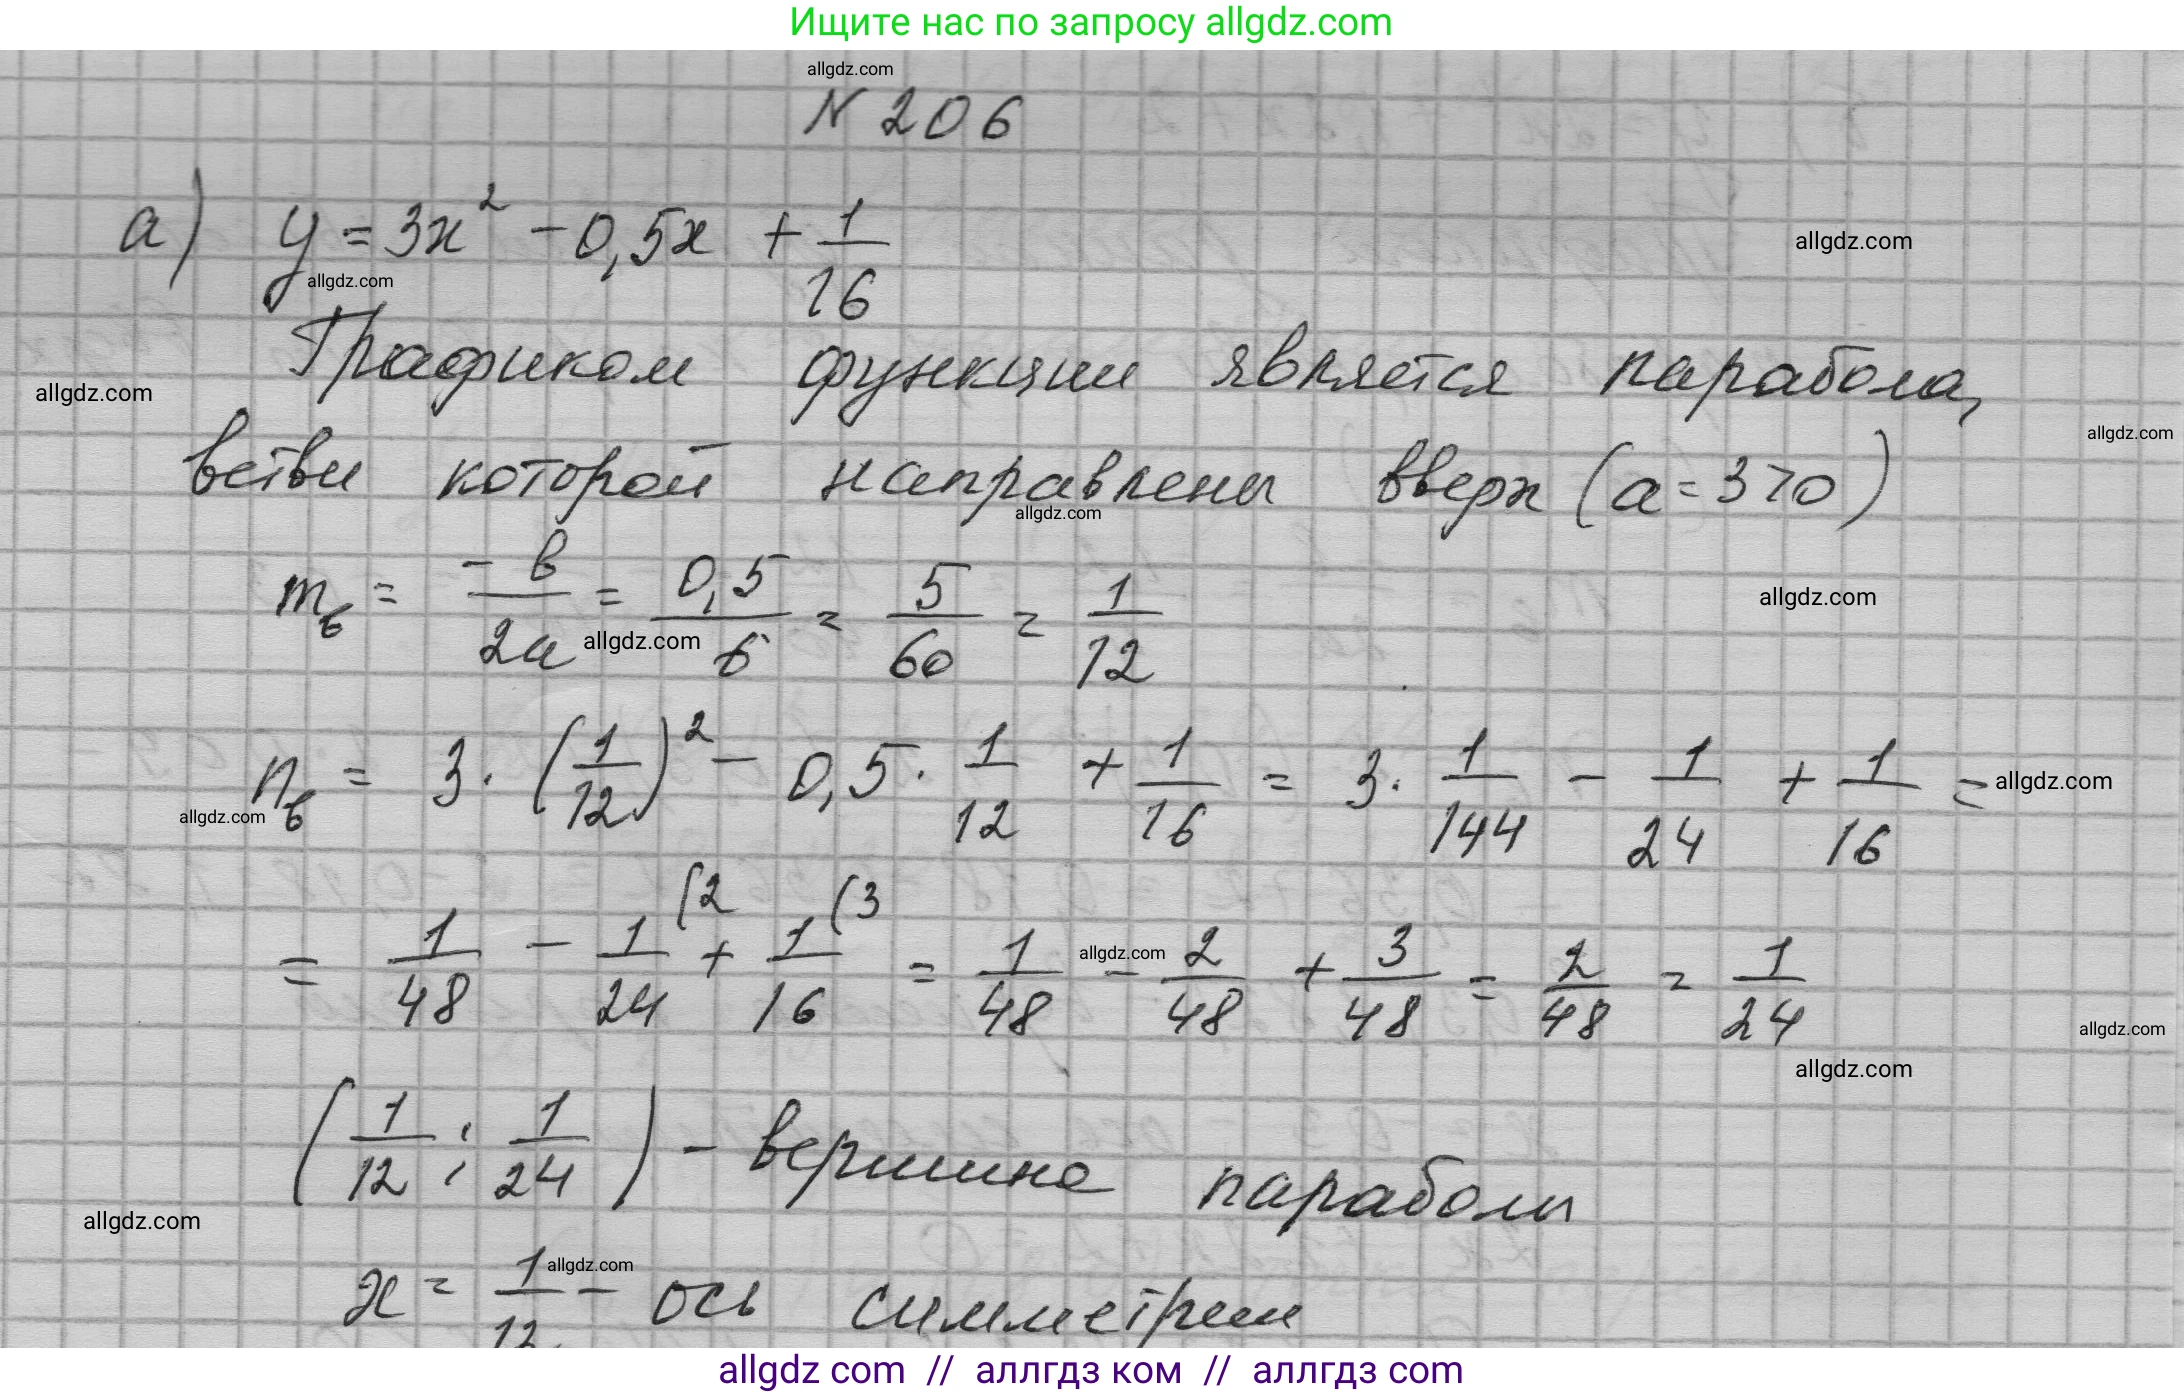 Ищите нас по запросу allgdz.com
allgdz.com
N 206
а) y = 3x² - 0,5x + 1/16
allgdz.com
allgdz.com
Графиком функции является парабола,
allgdz.com
allgdz.com
ветви которой направлены вверх (a = 3 > 0)
allgdz.com
m_в = -в/2a = 0,5/6 = 5/60 = 1/12
allgdz.com
allgdz.com
n_в = 3 · (1/12)² - 0,5 · 1/12 + 1/16 = 3 · 1/144 - 1/24 + 1/16 =
allgdz.com
allgdz.com
= 1/48 - 1/24 (2 + 1/16 (3 = 1/48 - 2/48 + 3/48 = 2/48 = 1/24
allgdz.com
allgdz.com
allgdz.com
(1/12 ; 1/24) - вершина параболы
allgdz.com
x = 1/12 - ось симметрии
allgdz.com
allgdz com // аллгдз ком // аллгдз com